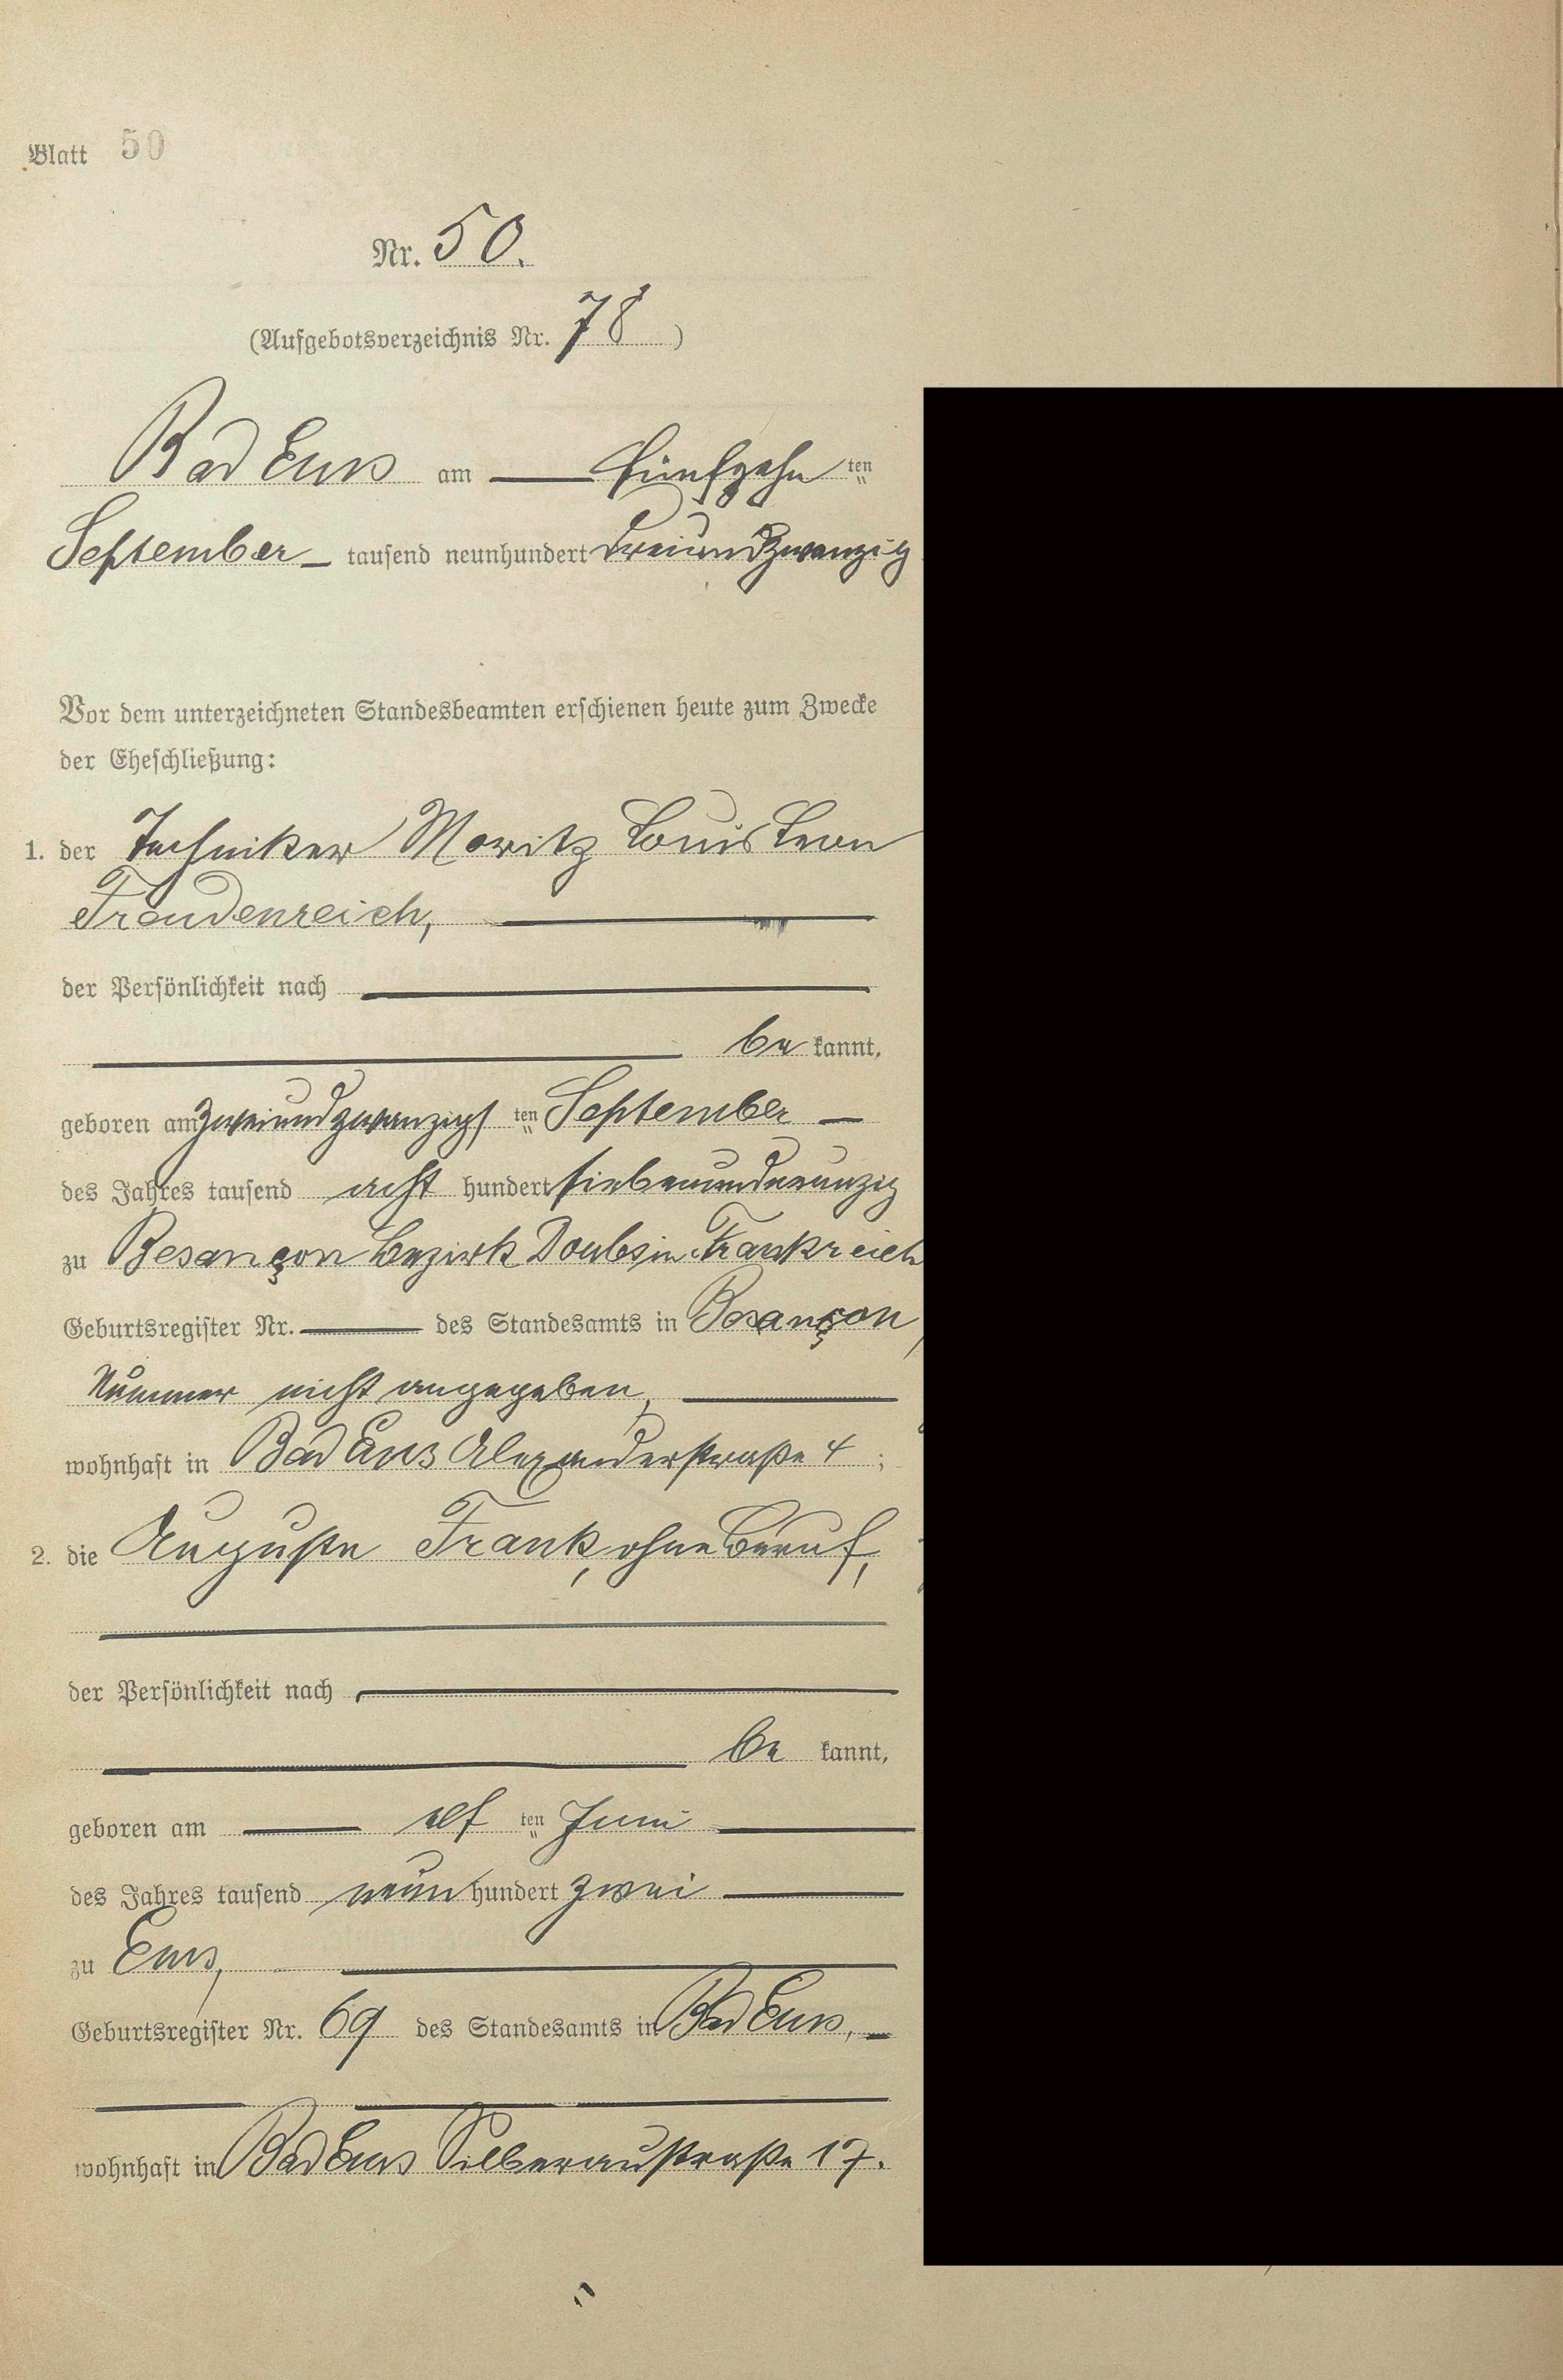 Blatt 50
Nr. 50.
(Aufgebotsverzeichnis Nr. 78)
Bad Ems am fünfzehn ten
September tausend neunhundert dreiundzwanzig
Vor dem unterzeichneten Standesbeamten erschienen heute zum Zwecke
der Eheschließung:
1. der Techniker Moritz Louis Leon
Freudenreich,
der Persönlichkeit nach
be kannt,
geboren am zweiundzwanzigs ten September
des Jahres tausend acht hundert siebenundneunzig
zu Besançon Bezirk Doubs in Frankreich
Geburtsregister Nr. des Standesamts in Besançon,
Nummer nicht angegeben,
wohnhaft in Bad Ems Alexanderstraße 4;
2. die Auguste Frank, ohne Beruf,
der Persönlichkeit nach
be kannt,
geboren am elf ten Juni
des Jahres tausend neun hundert zwei
zu Ems,
Geburtsregister Nr. 69 des Standesamts in Bad Ems,
wohnhaft in Bad Ems Silberaustraße 17.